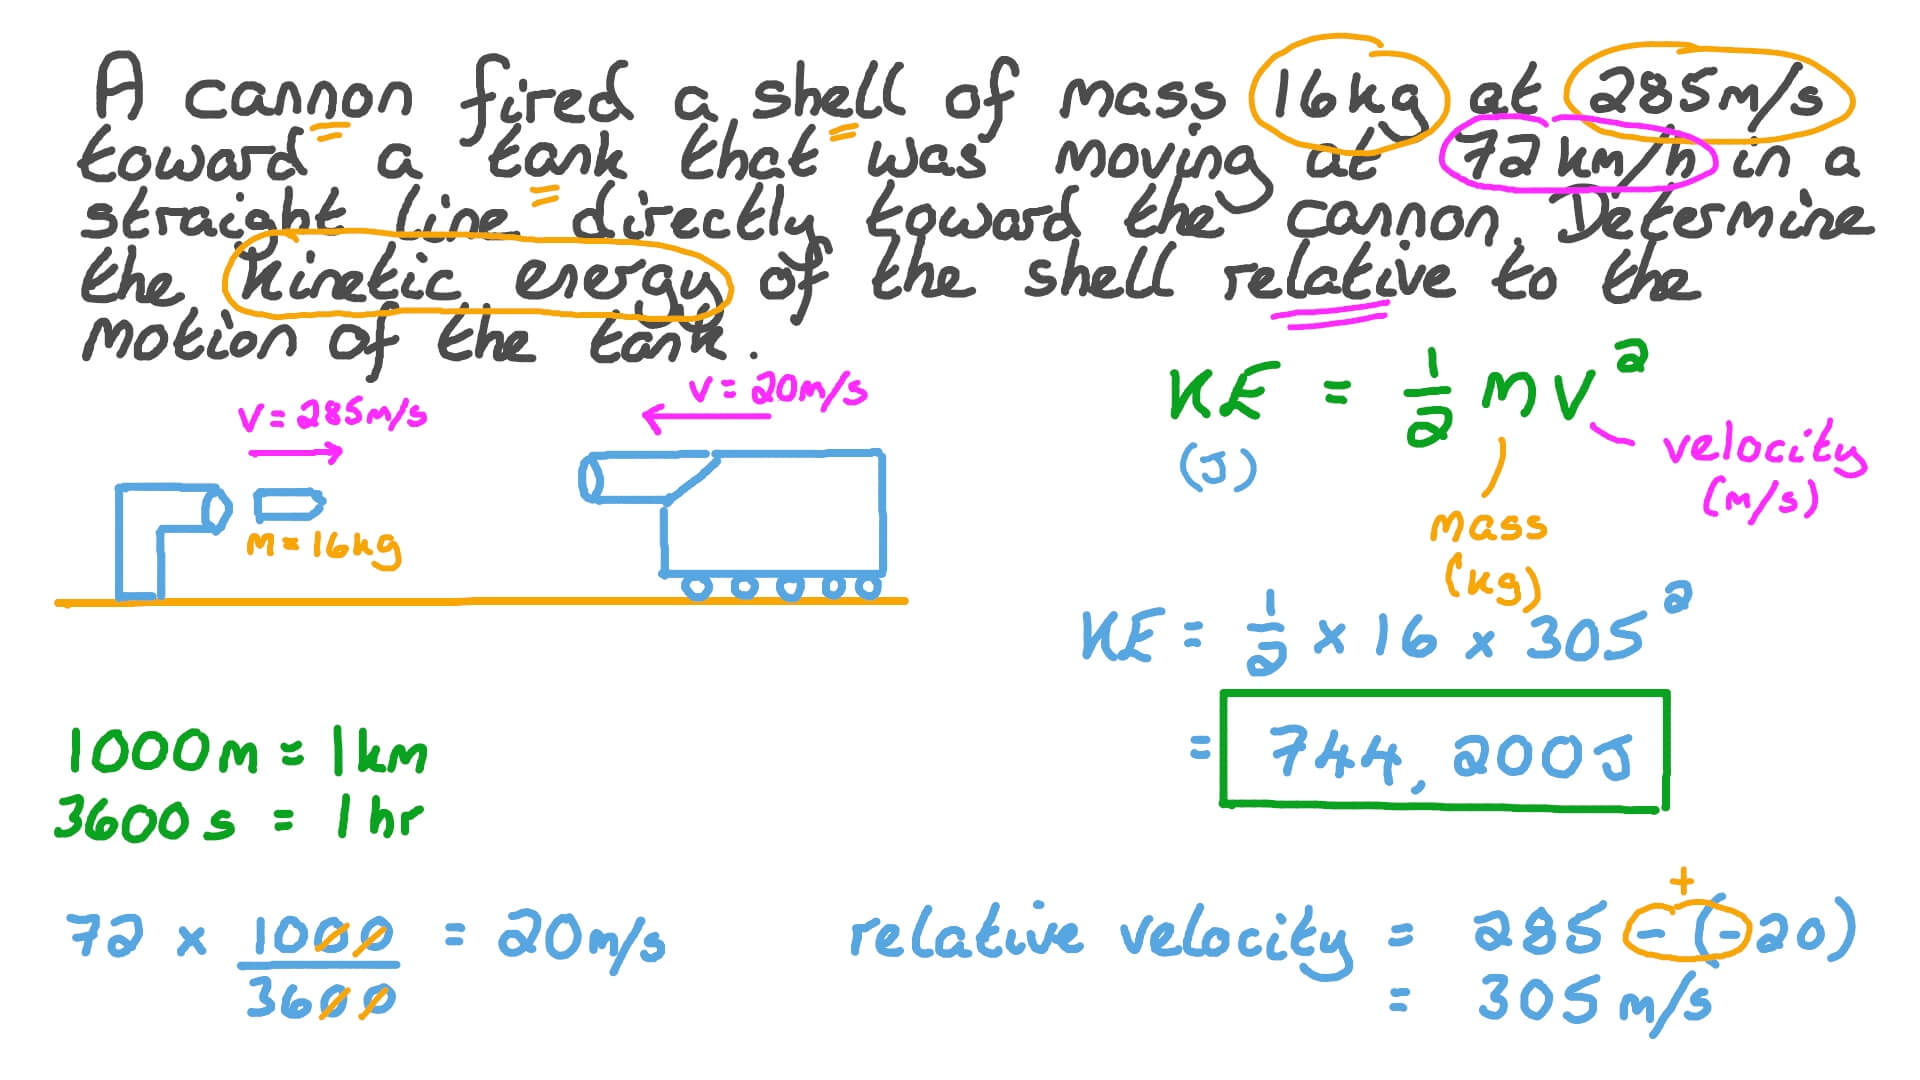 A cannon fired a shell of mass 16kg at 285m/s
toward a tank that was moving at 72 km/h in a
straight line directly toward the cannon. Determine
the kinetic energy of the shell relative to the
motion of the tank.
v = 285m/s
v = 20m/s
m = 16kg
KE = 1/2 mv²
(J)
velocity
(m/s)
mass
(kg)
KE = 1/2 × 16 × 305²
= 744,200J
1000m = 1km
3600s = 1hr
72 × 1000/3600 = 20m/s
+
relative velocity = 285 - (-20)
= 305 m/s